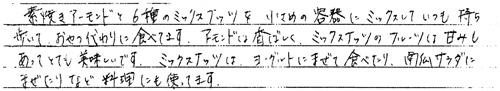 素焼きアーモンドと6種のミックスナッツを小さめの容器にミックスしていつも持ち
歩いておやつ代わりに食べてます。アーモンドは香ばしく、ミックスナッツのフルーツは甘みも
あってとても美味しいです。ミックスナッツは、ヨーグルトにまぜて食べたり、南仏サラダに
まぜたりなど料理にも使ってます。